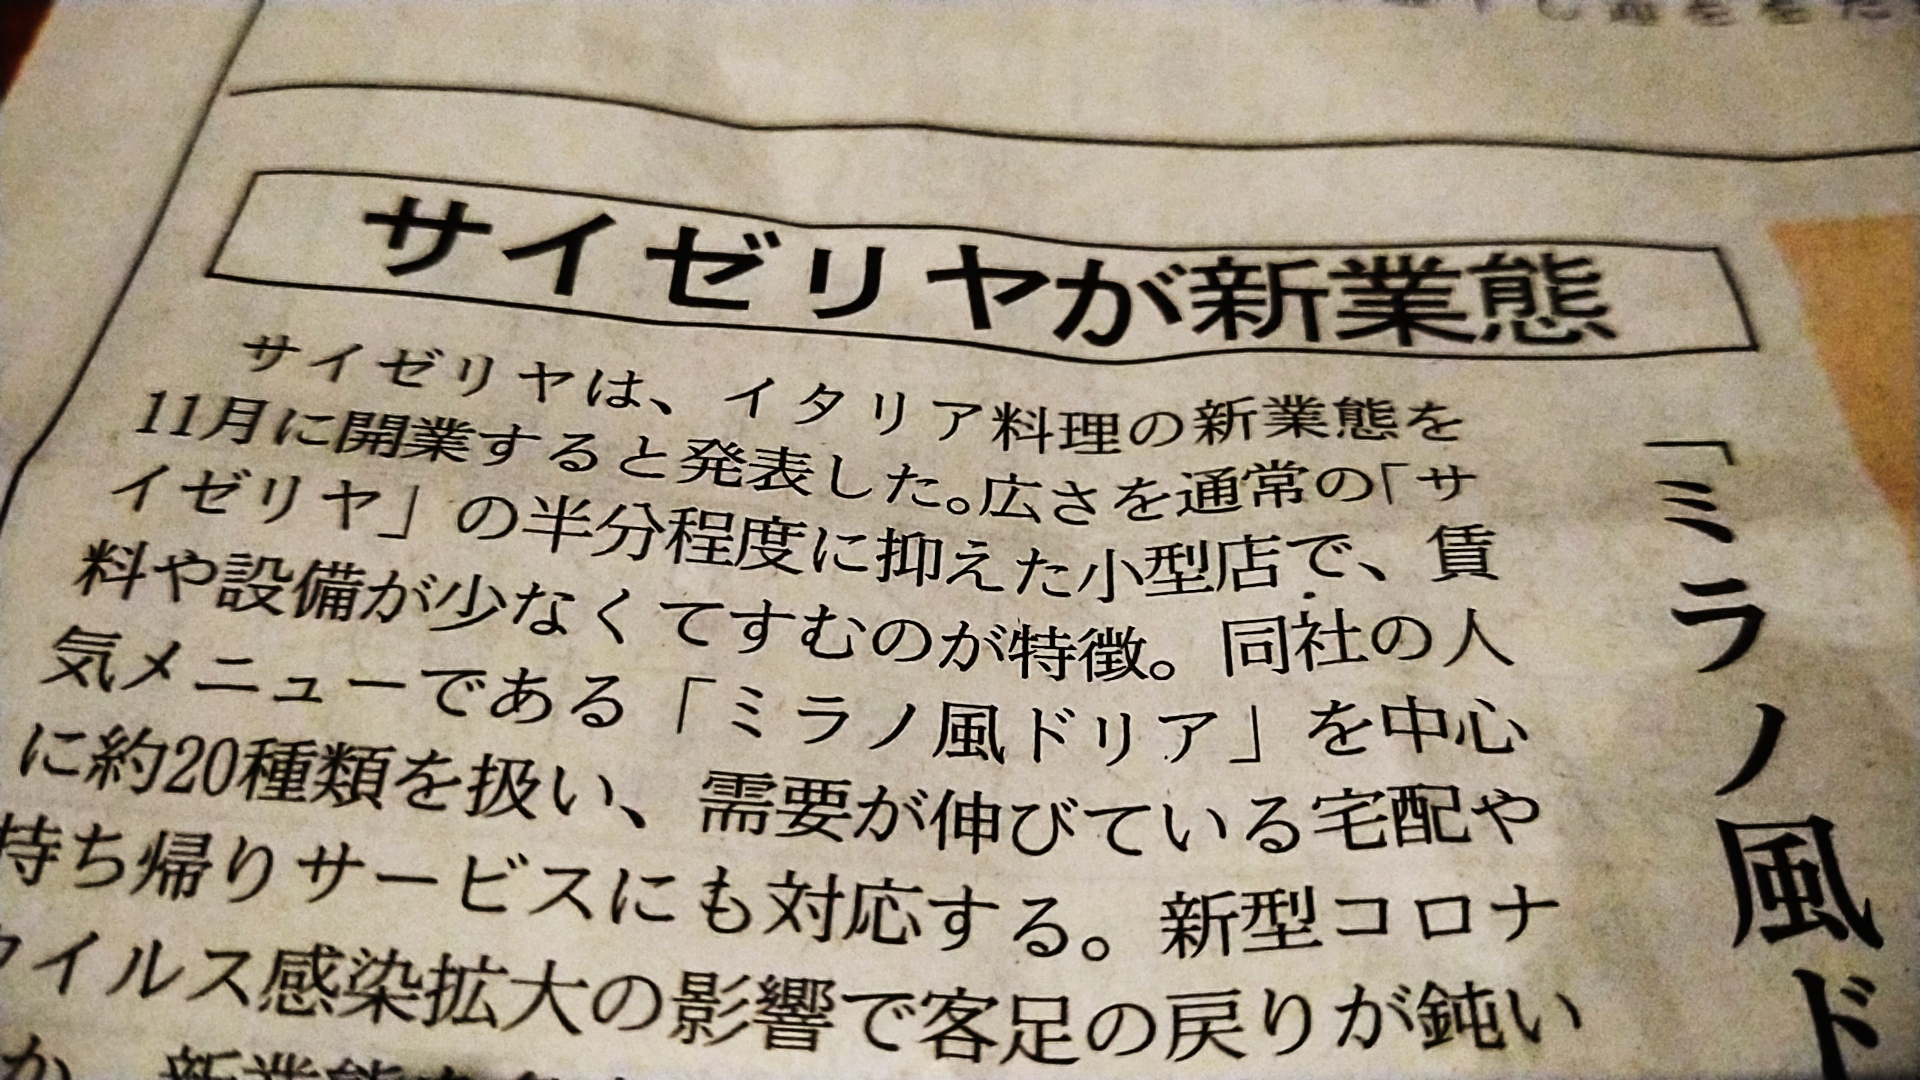 サイゼリヤが新業態
サイゼリヤは、イタリア料理の新業態を
11月に開業すると発表した。広さを通常の「サ
イゼリヤ」の半分程度に抑えた小型店で、賃
料や設備が少なくてすむのが特徴。同社の人
気メニューである「ミラノ風ドリア」を中心
に約20種類を扱い、需要が伸びている宅配や
持ち帰りサービスにも対応する。新型コロナ
ウイルス感染拡大の影響で客足の戻りが鈍い
「ミラノ風ド